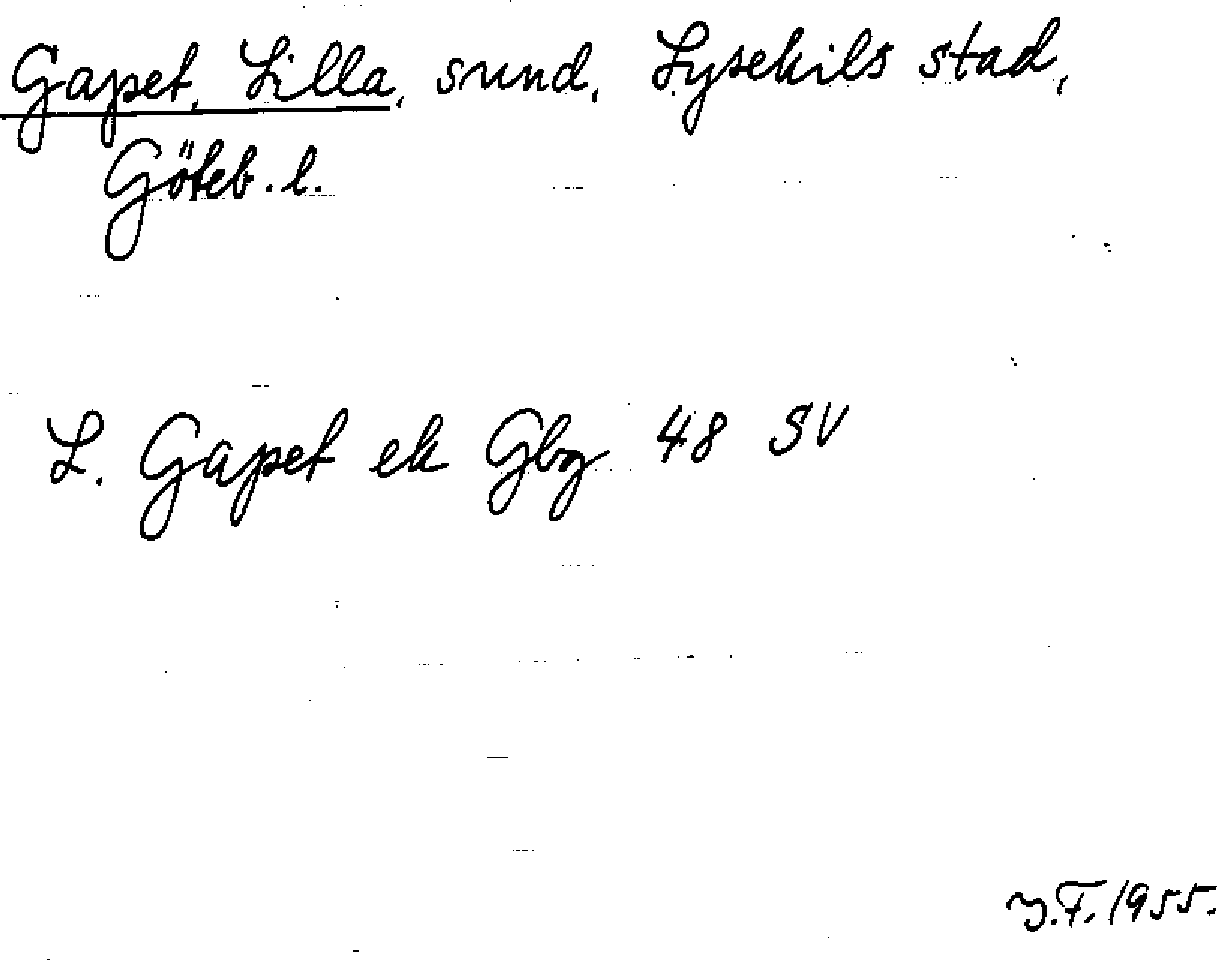 Gapet, Lilla, sund, Lysekils stad,
Göteb. l.
L. Gapet ek Gbg 48 SV
Y.F. 1955.